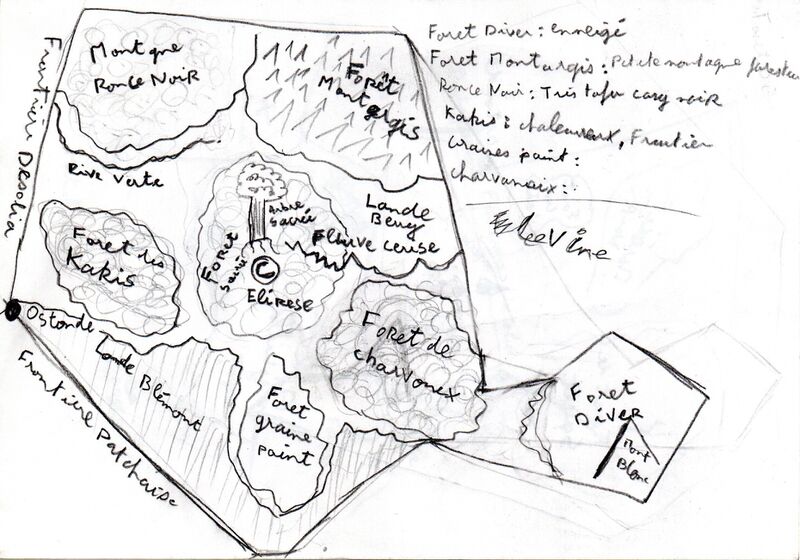 Montgne
Ronce Noir
Forêt
Montargis
Foret Diver : enneigé
Foret Montargis : Petite montagne forestier
Ronce Noir : Tris tofu casy noir
Kakis : chaleureux, Frontier
Graines paint :
charvanaix :
LeeVine
Frontière Desolia
Rive Verte
Arbre
Sacrée
Foret
Sacré
Elirese
Lande
Beney
Fleuve cerise
Foret des
Kakis
Ostonde
Lande Blémont
Frontière Patchaise
Foret
graine
paint
Foret de
charvonex
Foret
Diver
Mont
Blanc